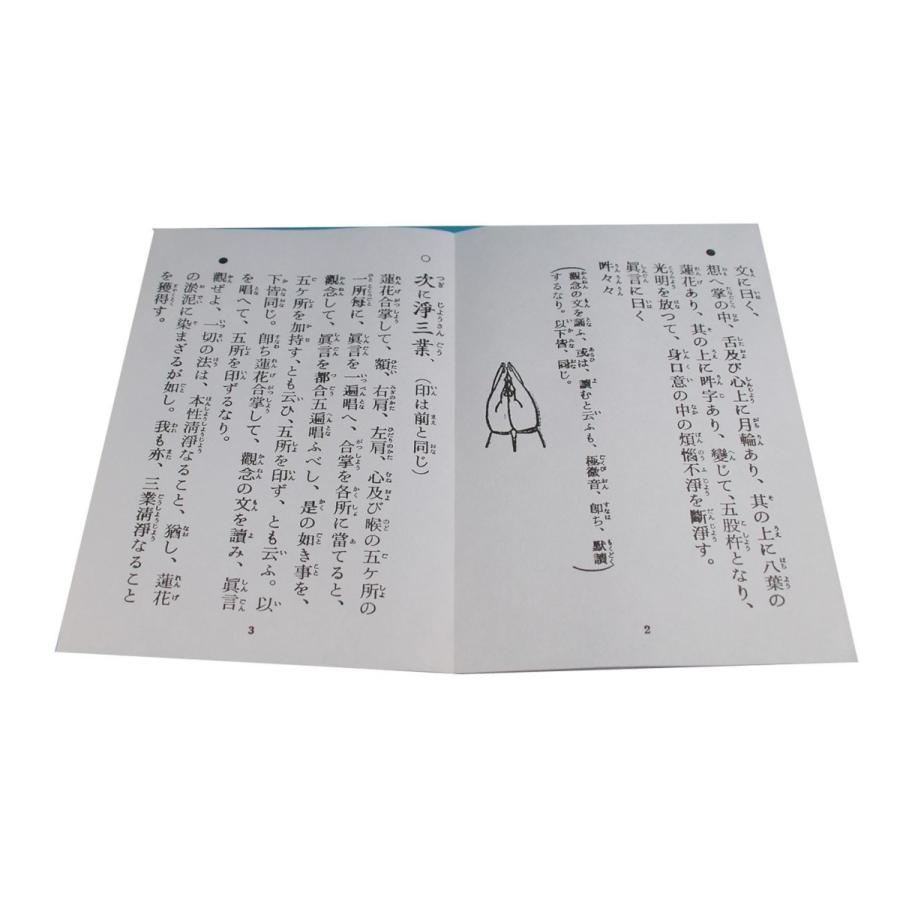 文に曰く、
●想へ掌の中、舌及び心上に月輪あり、其の上に八葉の
蓮花あり、其の上に吽字あり、變じて、五股杵となり、
光明を放つて、身口意の中の煩惱不淨を斷淨す。
眞言に曰く
吽々々
(觀念の文を誦ふ、或は、讀むと云ふも、極微音、卽ち、默讀
するなり。以下皆、同じ。)
2
○次に淨三業、(印は前と同じ)
蓮花合掌して、額、右肩、左肩、心及び喉の五ケ所の
一所每に、眞言を一遍唱へ、合掌を各所に當てると、
觀念して、眞言を都合五遍唱ふべし、是の如き事を、
五ケ所を加持す、とも云ひ、五所を印ず、とも云ふ。以
下皆同じ。卽ち蓮花合掌して、觀念の文を讀み、眞言
を唱へて、五所を印ずるなり。
●觀ぜよ、一切の法は、本性淸淨なること、猶し、蓮花
の淤泥に染まざるが如し。我も亦、三業淸淨なること
を獲得す。
3